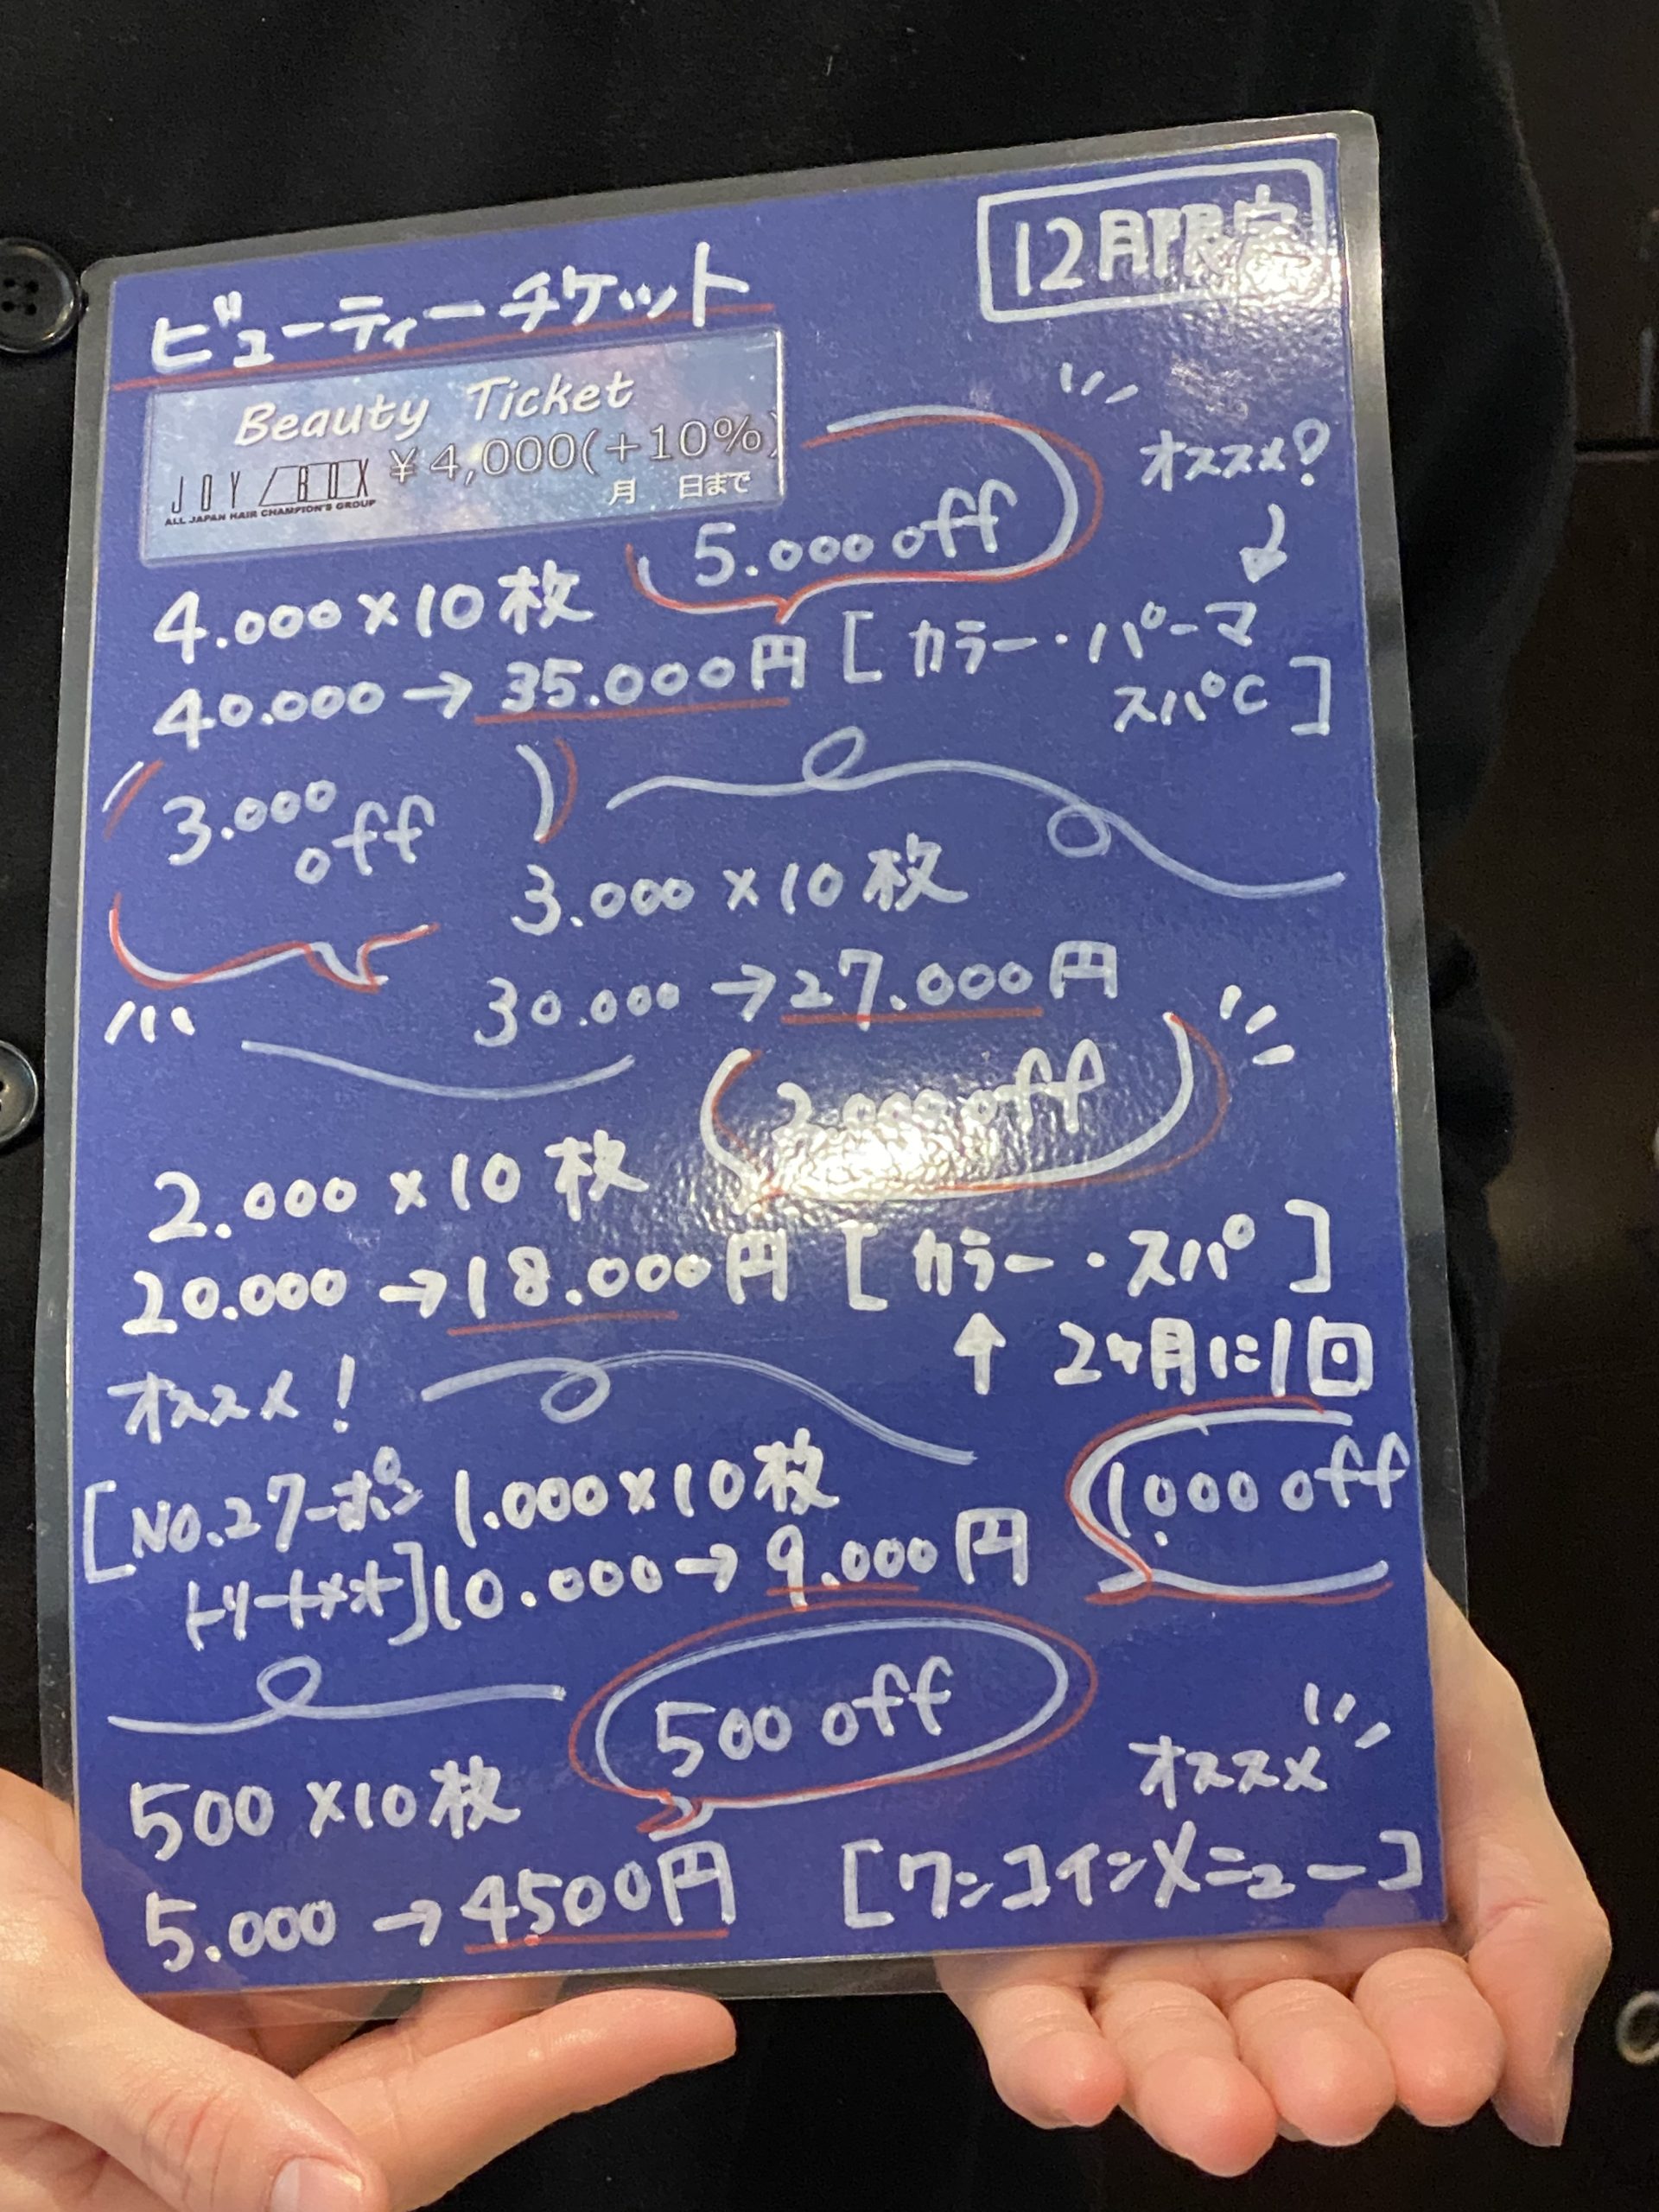 12月限定
ビューティーチケット
Beauty Ticket
¥4,000(+10%)
JOY/BOX
ALL JAPAN HAIR CHAMPION'S GROUP
月 日まで
オススメ?
5.000 off
4.000×10枚
40.000→35.000円
[カラー・パーマ
スパC]
3.000
off
3.000×10枚
30.000→27.000円
2.000 off
2.000×10枚
20.000→18.000円 [カラー・スパ]
↑ 2ヶ月に1回
オススメ!
[NO.27-ポン
トリートメント]
1.000×10枚
10.000→9.000円
1.000 off
500 off
500×10枚
5.000→4500円
オススメ
[ワンコインメニュー]